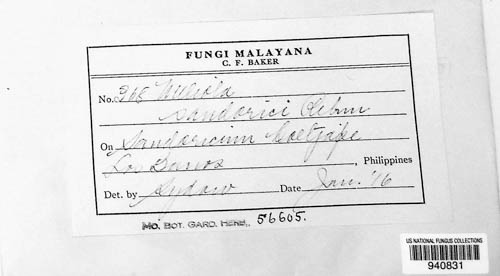 FUNGI MALAYANA
C. F. BAKER
No. 368 Meliola
sandorici Rehm
On Sandoricum Koetjape
Los Banos, Philippines
Det. by Sydow Date Jan. '16
MO. BOT. GARD. HERB., 56605.
US NATIONAL FUNGUS COLLECTIONS
940831